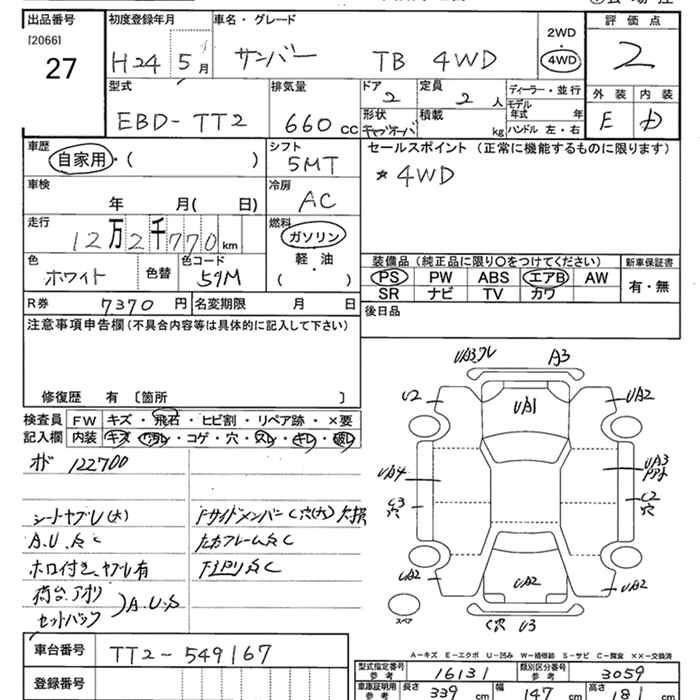 出品番号
[2066]
27
初度登録年月
H24 5月
車名・グレード
サンバー TB 4WD
2WD
・
4WD
評価点
2
型式
EBD-TT2
排気量
660cc
ドア
2
定員
2人
ディーラー・並行
モデル年式 年
ハンドル 左・右
形状
積載
kg
外装 内装
E D
車歴
自家用・( )
シフト
5MT
車検
年 月( 日)
冷房
AC
走行
12万2千770km
燃料
ガソリン
軽・油
( )
色
ホワイト
色替
色コード
51M
R券 7370円
名変期限 月 日
セールスポイント (正常に機能するものに限ります)
*4WD
装備品 (純正品に限り○をつけてください)
PS PW ABS エアB AW
SR ナビ TV カワ
新車保証書
有・無
後日品
注意事項申告欄 (不具合内容等は具体的に記入して下さい)
修復歴 有 〔箇所 〕
検査員記入欄
FW キズ・飛石・ヒビ割・リペア跡・×要
内装 キズ・汚れ・コゲ・穴・スレ・キレ・破レ
オド 122700
シートヤブレ(大)
A.U.S C
ホロ付き、ヤブレ有
荷台、アオリ
セットバック
A.U.S
Fサイドメンバー C穴(大)欠損
UA3ワレ A3
U2 UA1 UA2
UA4 UA3
C3 穴
C2 穴
UA2 UA2 UA2
C穴 U3
スペア
A-キズ E-エクボ U-凹み W-補修跡 S-サビ C-腐食 ××-交換済
車台番号
TT2-549167
登録番号
型式指定番号 参考
16131
類別区分番号 参考
3059
車庫証明用 参考
長さ 339cm 幅 147cm 高さ 181cm